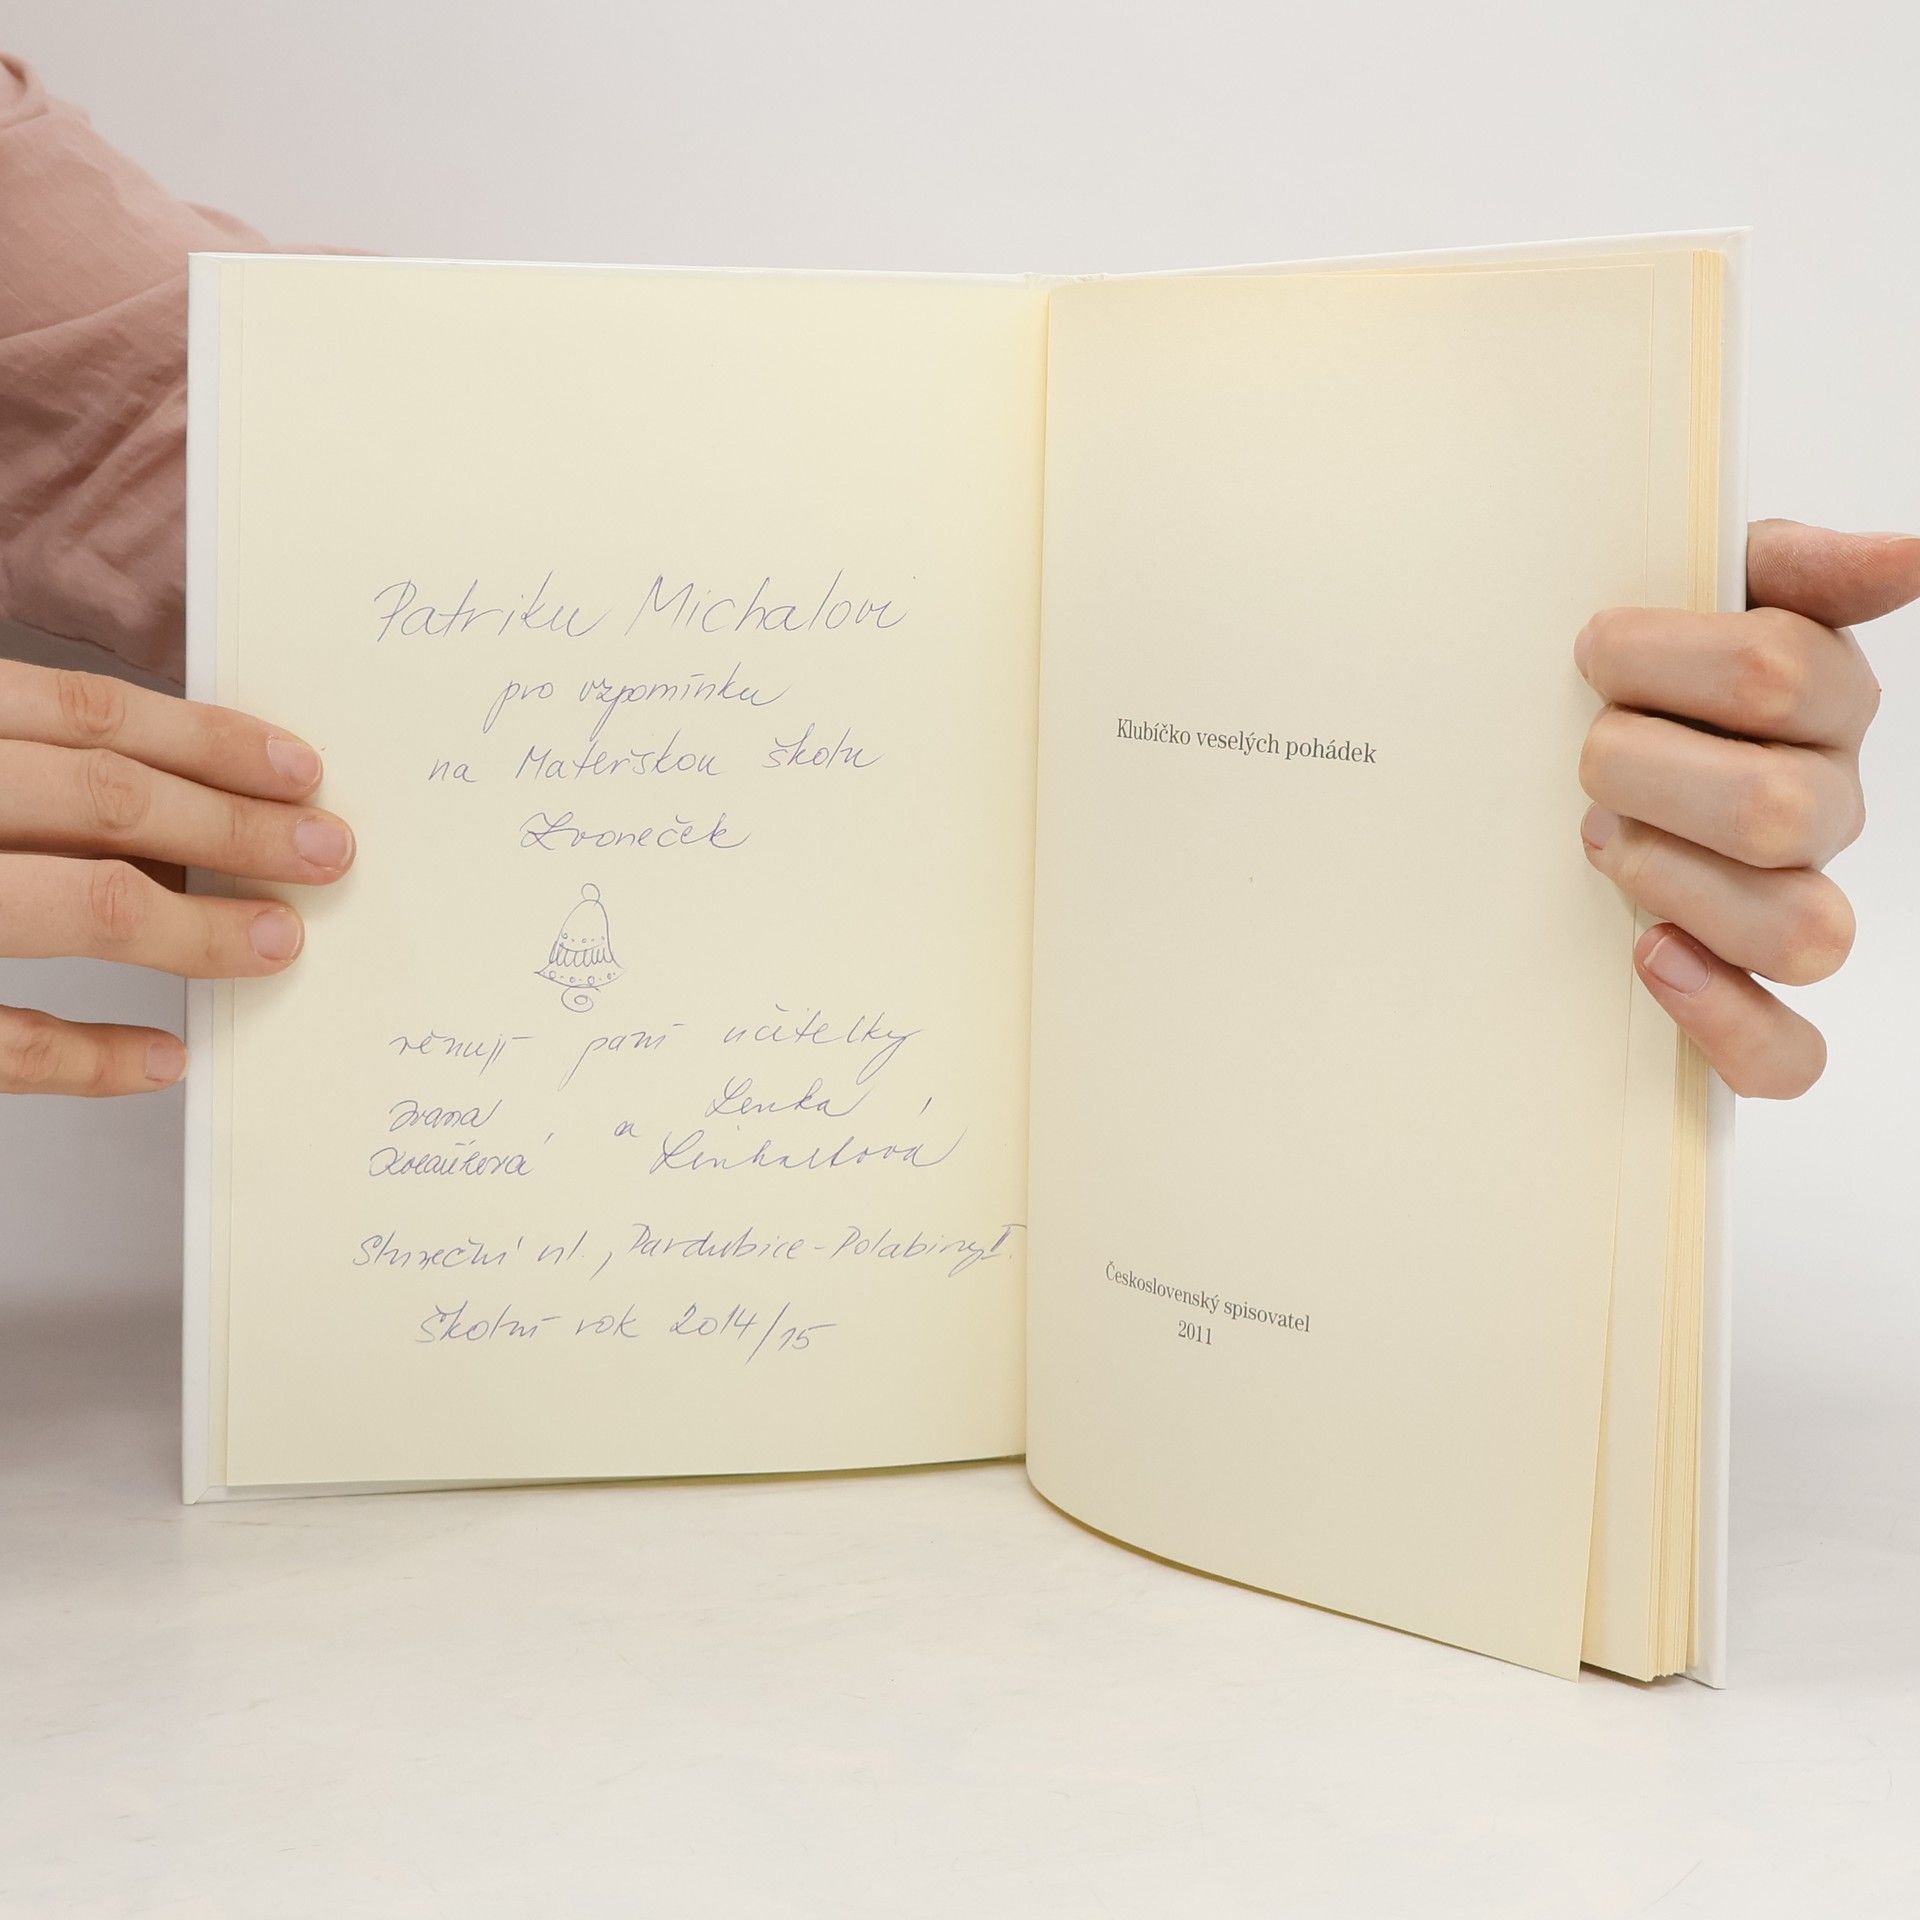 Patriku Michalovi
pro vzpomínku
na Mateřskou školu
Zvoneček
věnují paní učitelky
Ivana a Lenka
Linhartová
Sluneční ul., Pardubice-Polabiny II.
Školní rok 2014/15
Klubíčko veselých pohádek
Československý spisovatel
2011